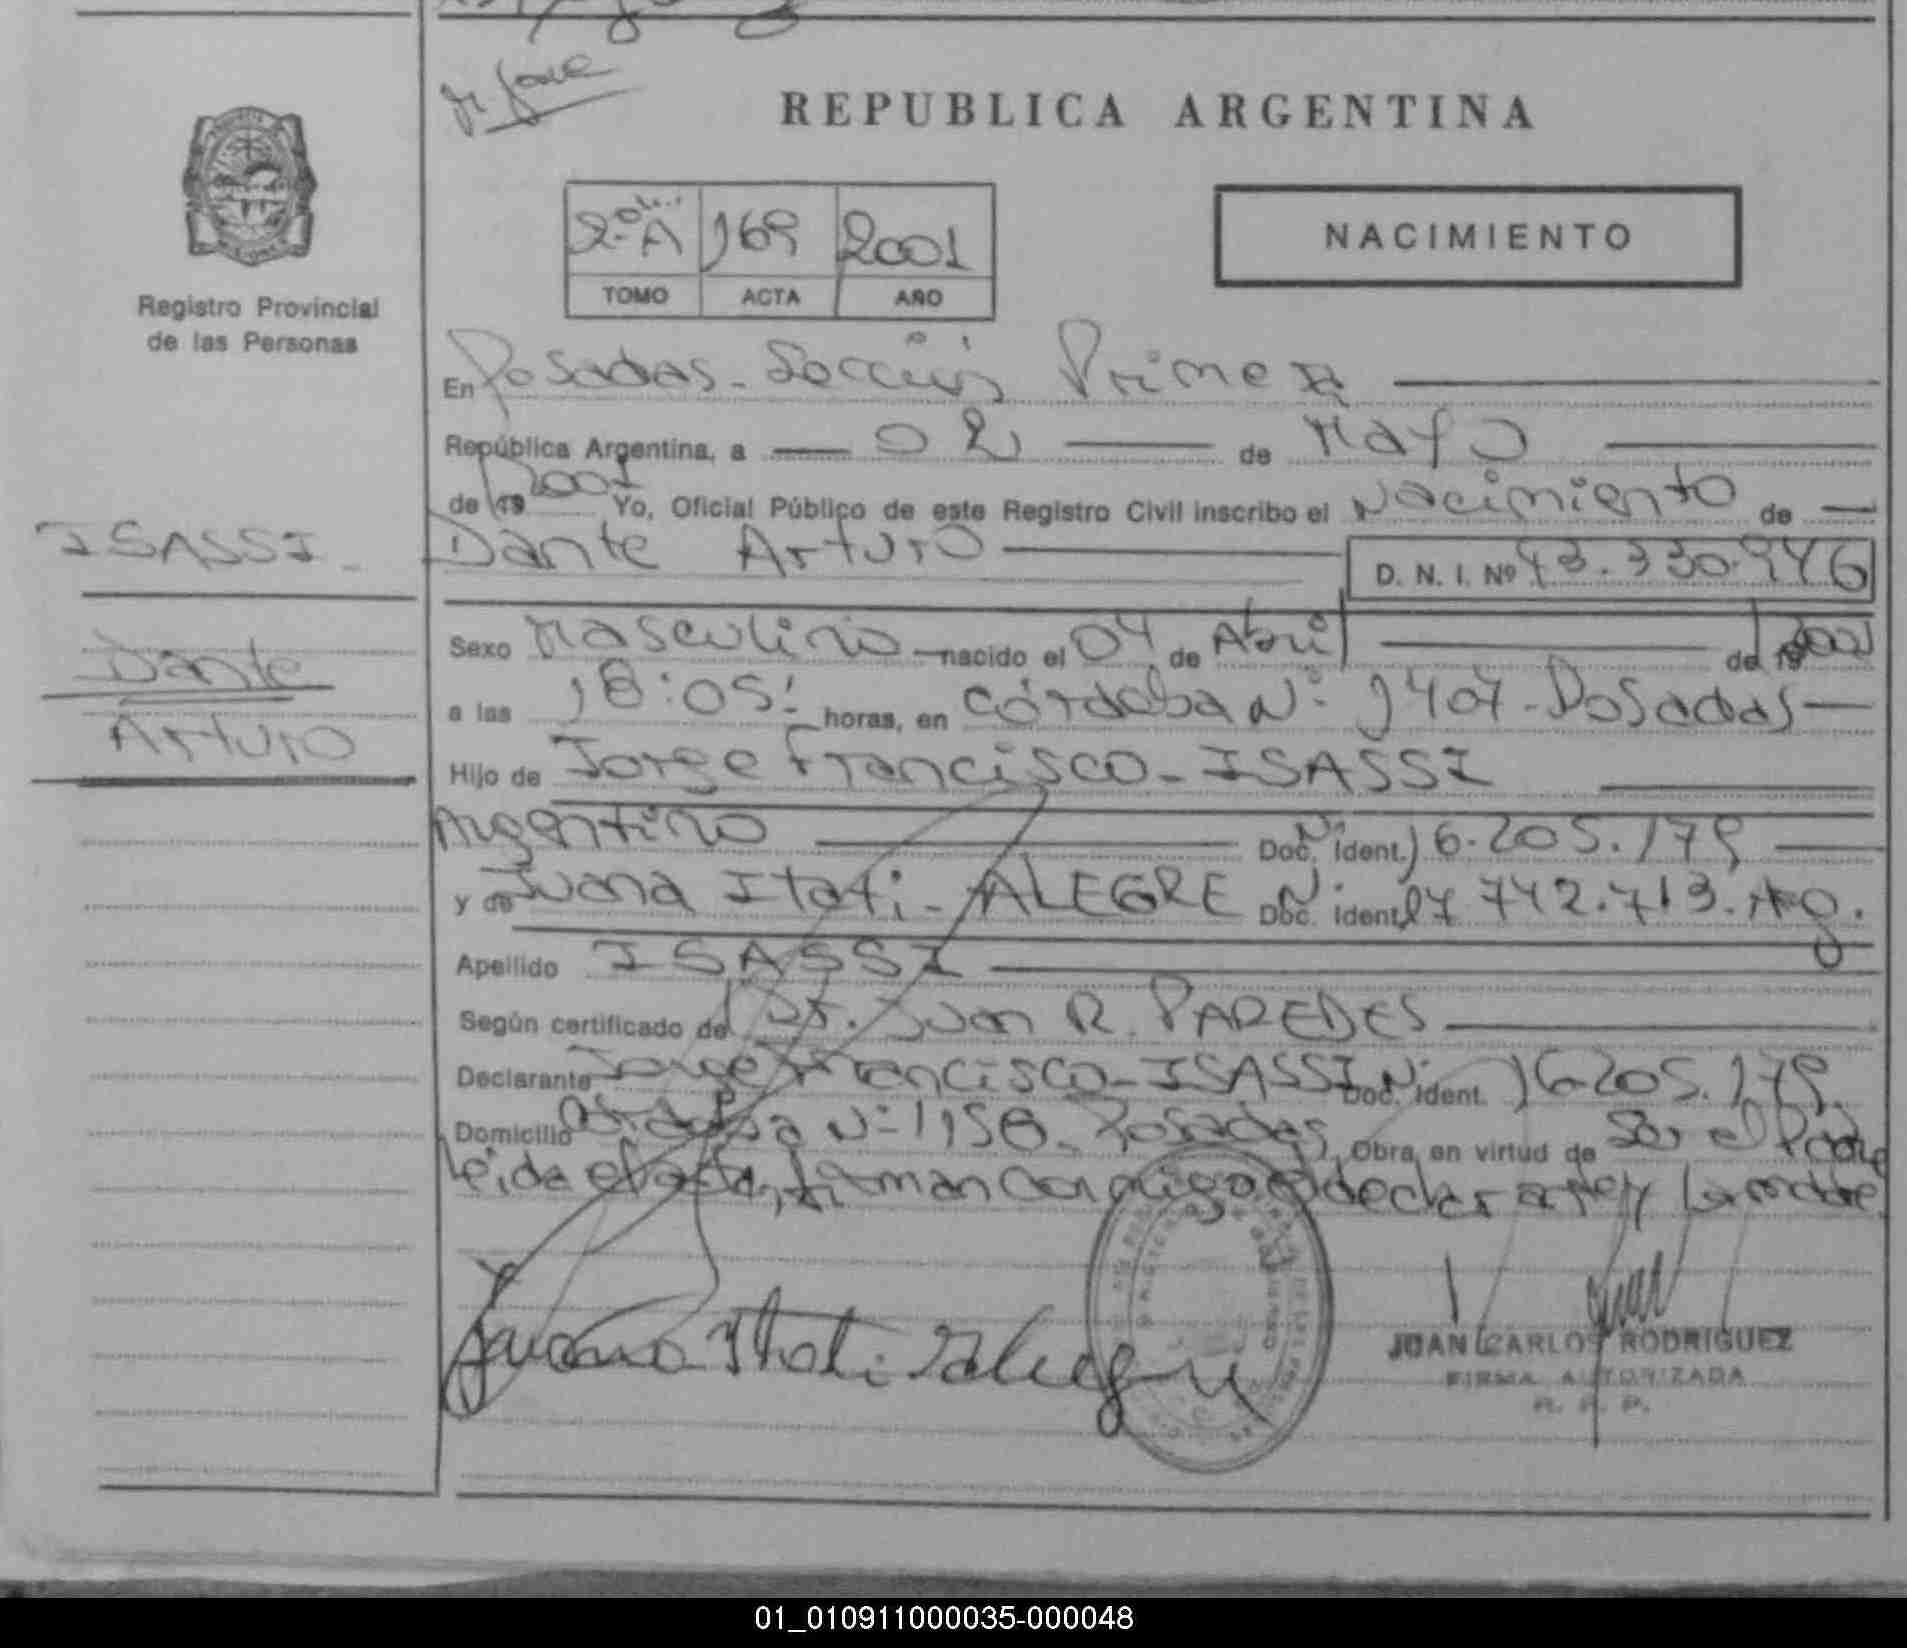 REPUBLICA ARGENTINA
2º A 169 2001
TOMO ACTA AÑO
NACIMIENTO
Registro Provincial
de las Personas
En Posadas - Sección Primera
República Argentina, a 02 de Mayo
de 19 2001 Yo, Oficial Público de este Registro Civil inscribo el Nacimiento de
ISASSI
Dante Arturo D. N. I. Nº 43.330.946
Dante
Arturo
Sexo Masculino nacido el 04 de Abril de 2001
a las 18:05 horas, en Córdoba Nº 1404 - Posadas
Hijo de Jorge Francisco - ISASSI
Argentino Doc. Ident. 16.205.179
y de Juana Itati - ALEGRE Doc. Ident. 742.713. Arg.
Apellido ISASSI
Según certificado de Dr. Juan R. PAREDES
Declarante Jorge Francisco - ISASSI Nº Doc. Ident. 16.205.179
Domicilio Nº 1158 - Posadas Obra en virtud de Ser el Padre
Leida el acta, firman conmigo el declarante y la madre.
Juana Itati Alegre
JUAN CARLOS RODRIGUEZ
FIRMA AUTORIZADA
R. P. P.
01_010911000035-000048